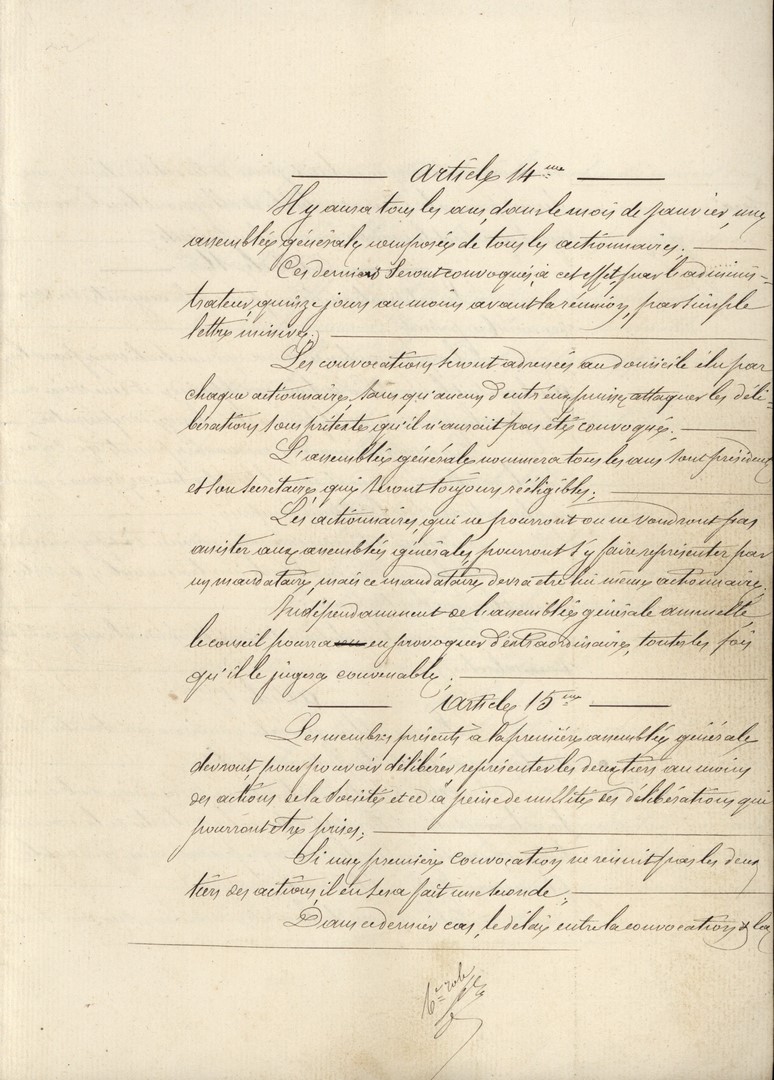 Article 14me
Il y aura tous les ans, dans le mois de janvier, une
assemblée générale composée de tous les actionnaires.
Ces derniers seront convoqués, à cet effet, par l'adminis-
trateur, quinze jours au moins avant la réunion, par simple
lettre missive.
Les convocations seront adressées au domicile élu par
chaque actionnaire, sans qu'aucun d'entr'eux puisse attaquer les déli-
bérations sous prétexte qu'il n'aurait pas été convoqué.
L'assemblée générale nommera tous les ans son président
et son secrétaire, qui seront toujours rééligibles;
Les actionnaires, qui ne pourront ou ne voudront pas
assister aux assemblées générales, pourront s'y faire représenter par
un mandataire, mais ce mandataire devra être lui même actionnaire.
Indépendamment de l'assemblée générale annuelle,
le conseil pourra en provoquer d'extraordinaires, toutes les fois
qu'il le jugera convenable;
Article 15me
Les membres présents à la première assemblée générale
devront, pour pouvoir délibérer représenter les deux tiers au moins
des actions de la Société et ce à peine de nullité des délibérations qui
pourront être prises;
Si une première convocation ne réunit pas les deux
tiers des actions, il en sera fait une seconde;
Dans ce dernier cas, le délai entre la convocation & la
6e role